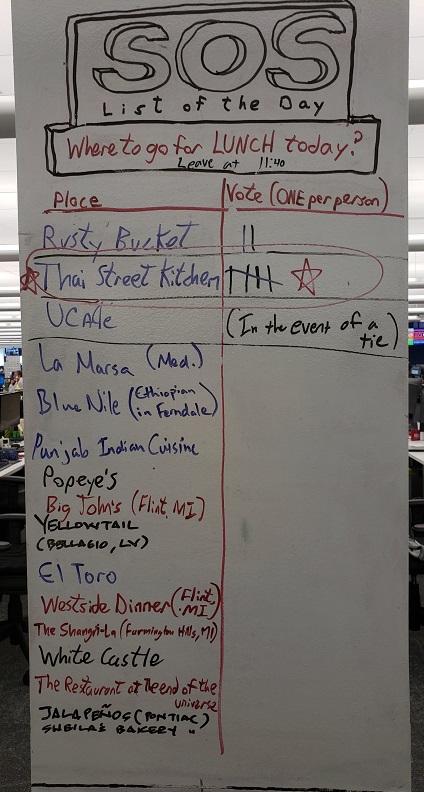 SOS
List of the Day
Where to go for LUNCH today?
Leave at 11:40
Place Vote (ONE per person)
Rusty Bucket ||
Thai Street Kitchen
UCafe (In the event of a
tie)
La Marsa (Med.)
Blue Nile (Ethiopian
in Ferndale)
Punjab Indian Cuisine
Popeye's
Big John's (Flint, MI)
YELLOWTAIL
(BELLAGIO, LV)
El Toro
Westside Dinner (Flint,
MI)
The Shangri-La (Farmington Hills, MI)
White Castle
The Restaurant at the end of the
universe
JALAPEÑOS (PONTIAC)
SHEILA'S BAKERY "